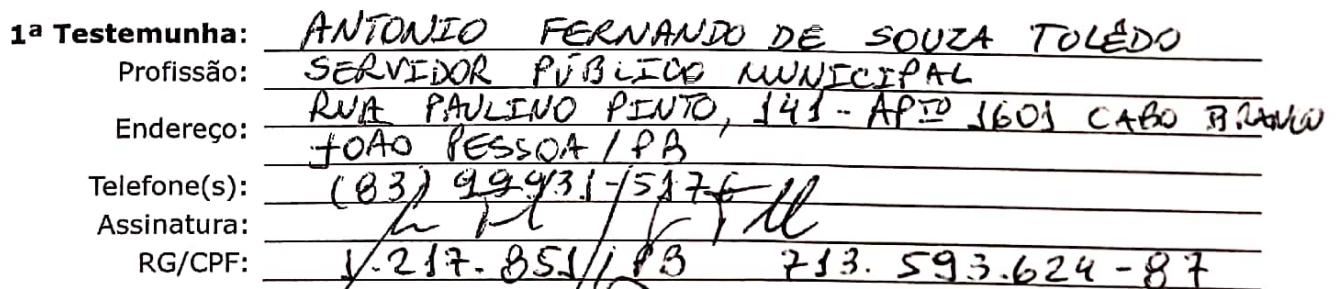 1ª Testemunha: ANTONIO FERNANDO DE SOUZA TOLÊDO
Profissão: SERVIDOR PÚBLICO MUNICIPAL
Endereço: RUA PAULINO PINTO, 141 - APTO 1601 CABO BRANCO
JOAO PESSOA / PB
Telefone(s): (83) 99931-5176
Assinatura:
RG/CPF: 1.217.851/PB 713.593.624-87